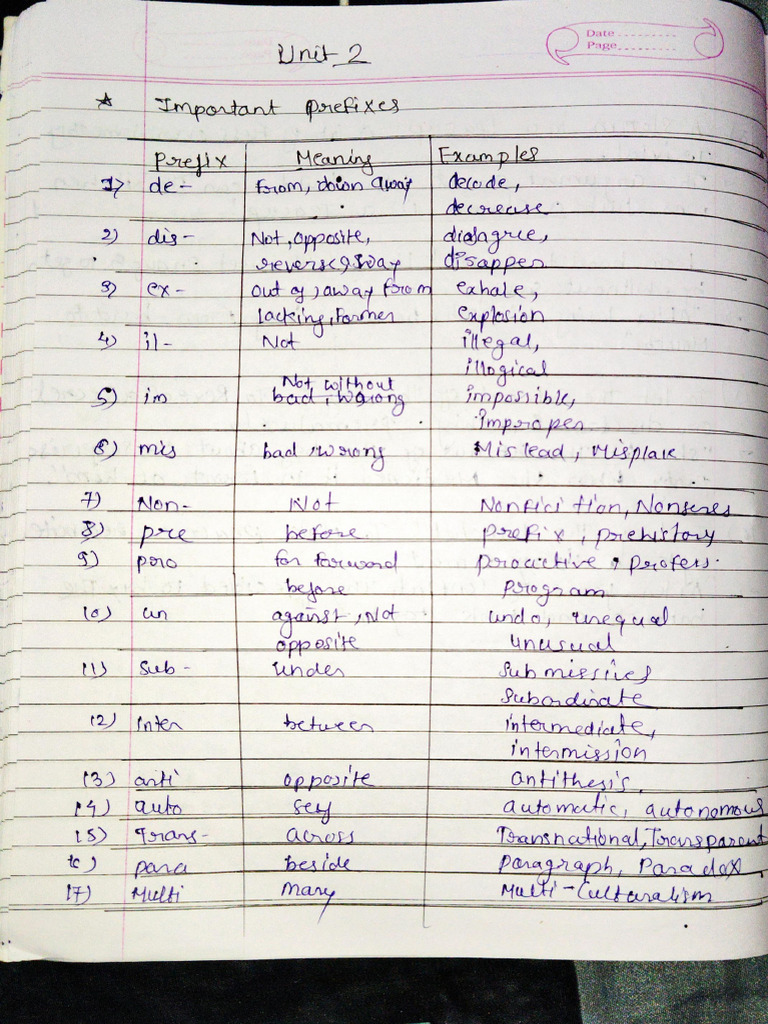 Date..........
Page..........
Unit 2
* Important prefixes
Prefix Meaning Examples
1) de- from, down away decode,
decrease
2) dis- Not, opposite, disagree,
reverse, away disapper
3) ex- out of, away from exhale,
lacking, Former explosion
4) il- Not illegal,
illogical
5) im Not, without impossible,
bad, wrong improper
6) mis bad, wrong Mislead, Misplace
7) Non- Not Nonficition, Nonsenes
8) pre before prefix, prehistory
9) pro for forward procictive, profess.
before program
10) un against, Not undo, unequal
opposite unusual
11) Sub- under Submissives
Subordinate
12) Inter between intermediate,
intermission
13) anti opposite antithesis
14) auto self automatic, autonomous
15) Trans- across Transnational, Transparent
16) para beside paragraph, Paradox
17) Multi many Multi-Culturalism